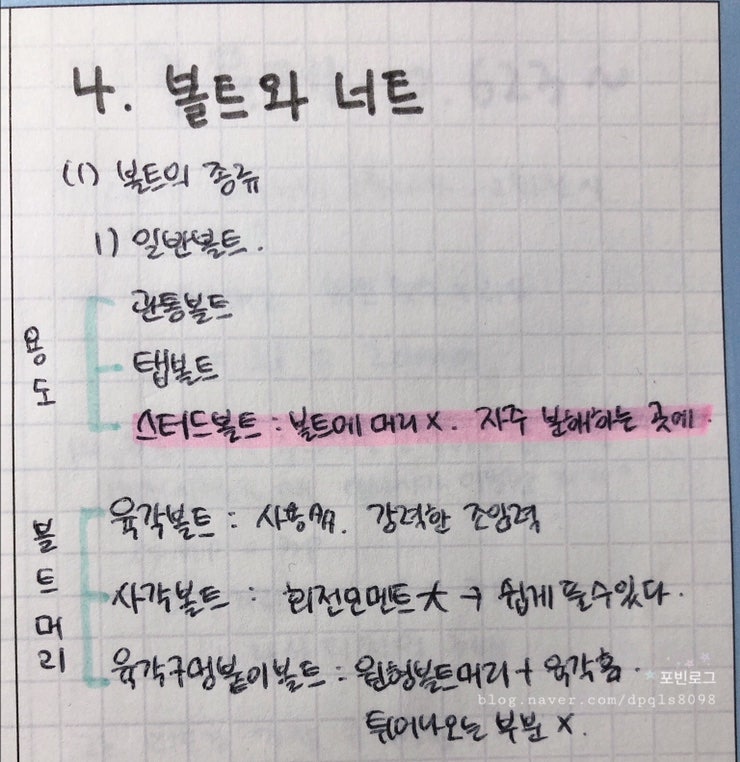 4. 볼트와 너트
(1) 볼트의 종류
1) 일반볼트.
용도
관통볼트
탭볼트
스터드볼트 : 볼트에 머리 X. 자주 분해하는 곳에.
볼트머리
육각볼트 : 사용 강력한 조임력
사각볼트 : 회전모멘트 大 → 쉽게 풀수있다.
육각구멍붙이볼트 : 원형볼트머리 + 육각홈.
튀어나오는 부분 X.
포빈로그
blog.naver.com/dpqls8098